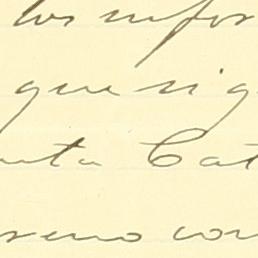 los infor
que sig
nta Cat
reno con